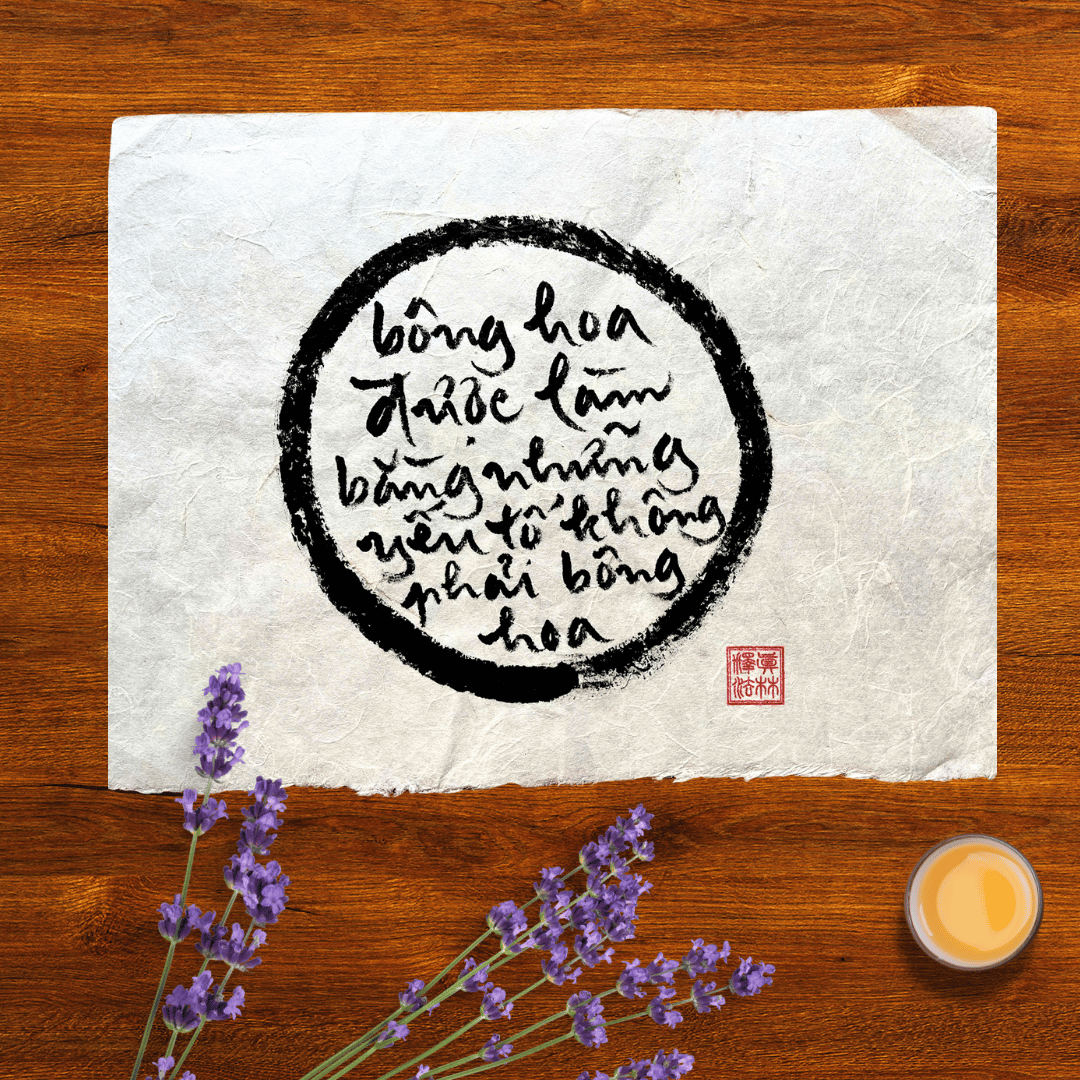 bông hoa
được làm
bằng những
yếu tố không
phải bông
hoa
眞林
澤法